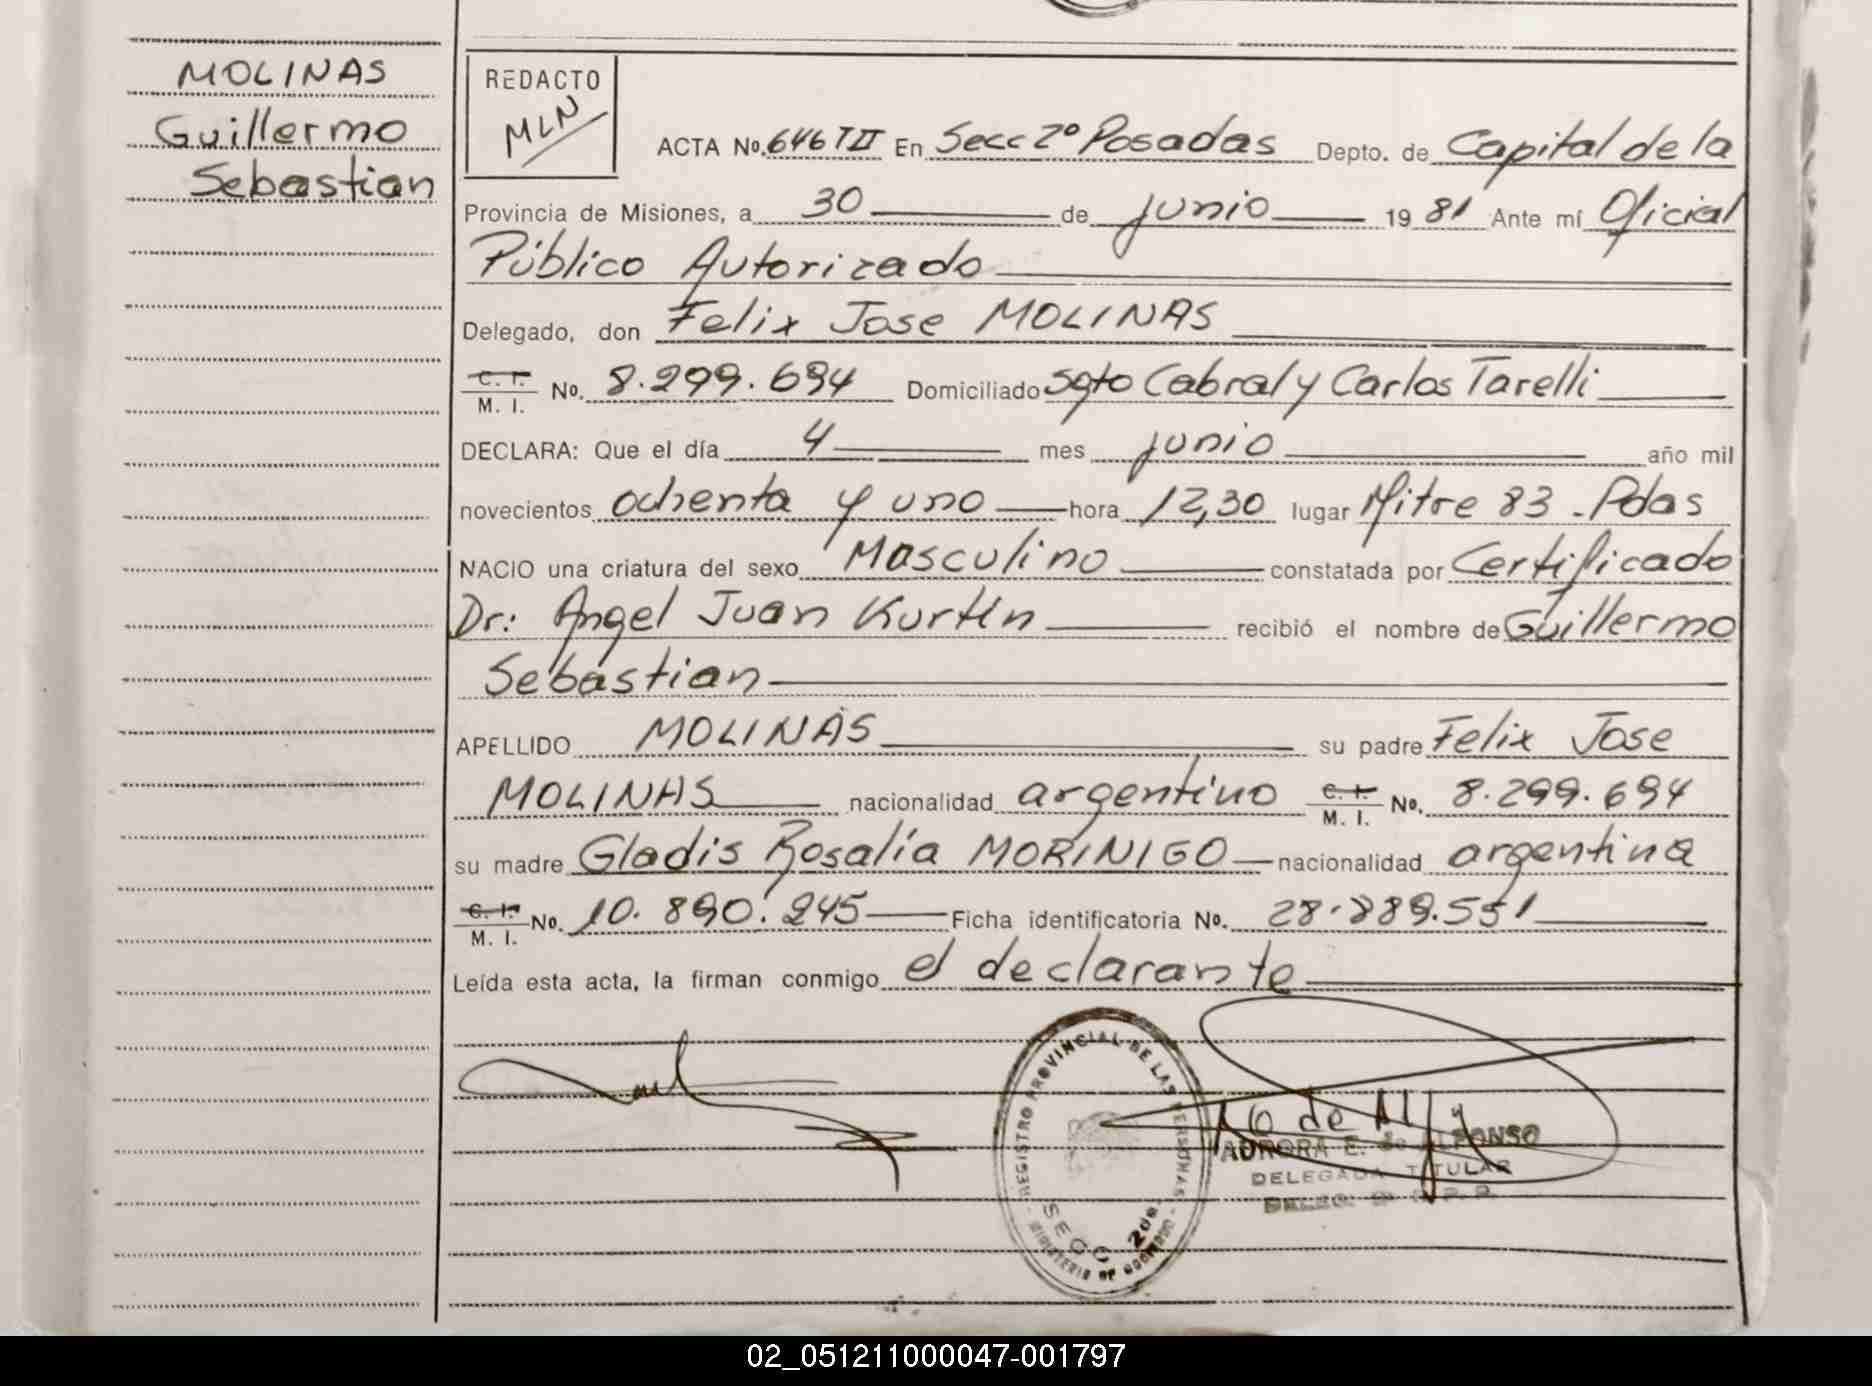 MOLINAS
Guillermo
Sebastian
REDACTO
MLN
ACTA No. 646 TII En Secc 2º Posadas Depto. de Capital de la
Provincia de Misiones, a 30 de junio 1981 Ante mí Oficial
Público Autorizado
Delegado, don Felix Jose MOLINAS
C. I. M. I. No. 8.299.694 Domiciliado Sgto Cabral y Carlos Tarelli
DECLARA: Que el día 4 mes junio año mil
novecientos ochenta y uno hora 12,30 lugar Mitre 83 - Pdas
NACIO una criatura del sexo Masculino constatada por Certificado
Dr: Angel Juan recibió el nombre de Guillermo
Sebastian
APELLIDO MOLINAS su padre Felix Jose
MOLINAS nacionalidad argentino C. I. M. I. No. 8.299.694
su madre Gladis Rosalía MORINIGO nacionalidad argentina
C. I. M. I. No. 10.890.245 Ficha identificatoria No. 28.889.551
Leída esta acta, la firman conmigo el declarante
REGISTRO PROVINCIAL DE LAS PERSONAS
MINISTERIO DE GOBIERNO
SECC 2da.
AURORA E. de ALFONSO
DELEGADA TITULAR
02_051211000047-001797